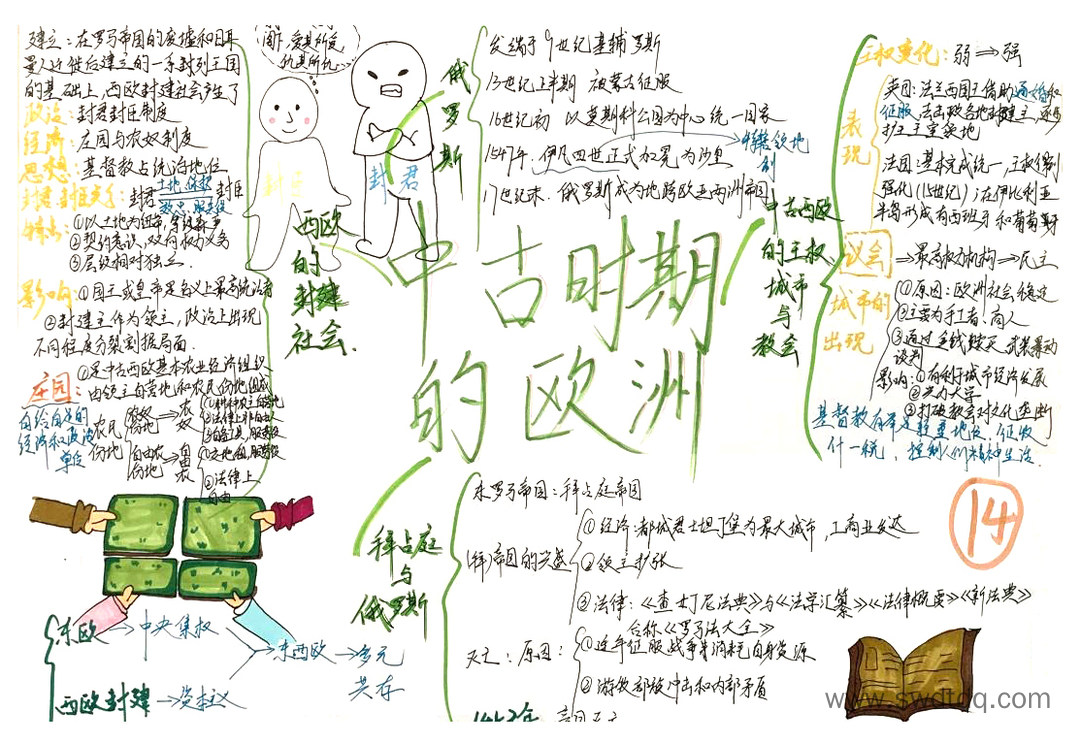 中古时期
的欧洲
西欧
的
封建
社会
建立：在罗马帝国的废墟和日耳
曼人迁徙后建立的一系列王国
的基础上，西欧封建社会产生了
政治：封君封臣制度
经济：庄园与农奴制度
思想：基督教占统治地位
封君
土地
封臣
特点：①以土地为纽带，等级森严
②契约意识，双向权力义务
③层级相对独立.
影响：①国王或皇帝是名义上最高统治者
②封建主作为领主，政治上出现
不同程度分裂割据局面.
庄园：
①是中古西欧基本农业经济组织
由领主自营地和农民份地组成
自给自足的
经济和政治
单位
农民
份地
农奴
份地
农
奴
自由农
份地
自由
农
②法律上
自由
封臣
封君
俄
罗
斯
发端于9世纪基辅罗斯
13世纪上半期 被蒙古征服
16世纪初 以莫斯科公国为中心统一国家
1547年. 伊凡四世正式加冕为沙皇
17世纪末. 俄罗斯成为地跨欧亚两洲帝国
中古西欧
的王权
城市
与
教会
王权变化：弱⇒强
表
现
英国：法王西国王借助通婚和
征服
法国：基本完成统一，王权得到
强化（15世纪）；在伊比利亚
半岛形成有西班牙和葡萄牙
议会→最高权力机构→民主
城市的
出现
①原因：欧洲社会稳定
②主要为手工者、商人
③通过金钱赎买 武装暴动
谈判
影响：①有利于城市经济发展
②兴办大学
③打破教会对文化垄断
什一税，控制人们精神生活.
14
拜占庭
与
俄罗斯
东罗马帝国：拜占庭帝国
(拜)帝国的兴盛
①经济：都城君士坦丁堡为最大城市，工商业发达
②领土扩张
③法律：《查士丁尼法典》与《法学汇纂》《法律概要》《新法典》
合称《罗马法大全》
灭亡：原因：
①连年征服战争消耗自身资源
②游牧部族冲击和内部矛盾
东欧→中央集权
西欧封建→资本主义
东西欧→多元
共存
www.swdtdq.com